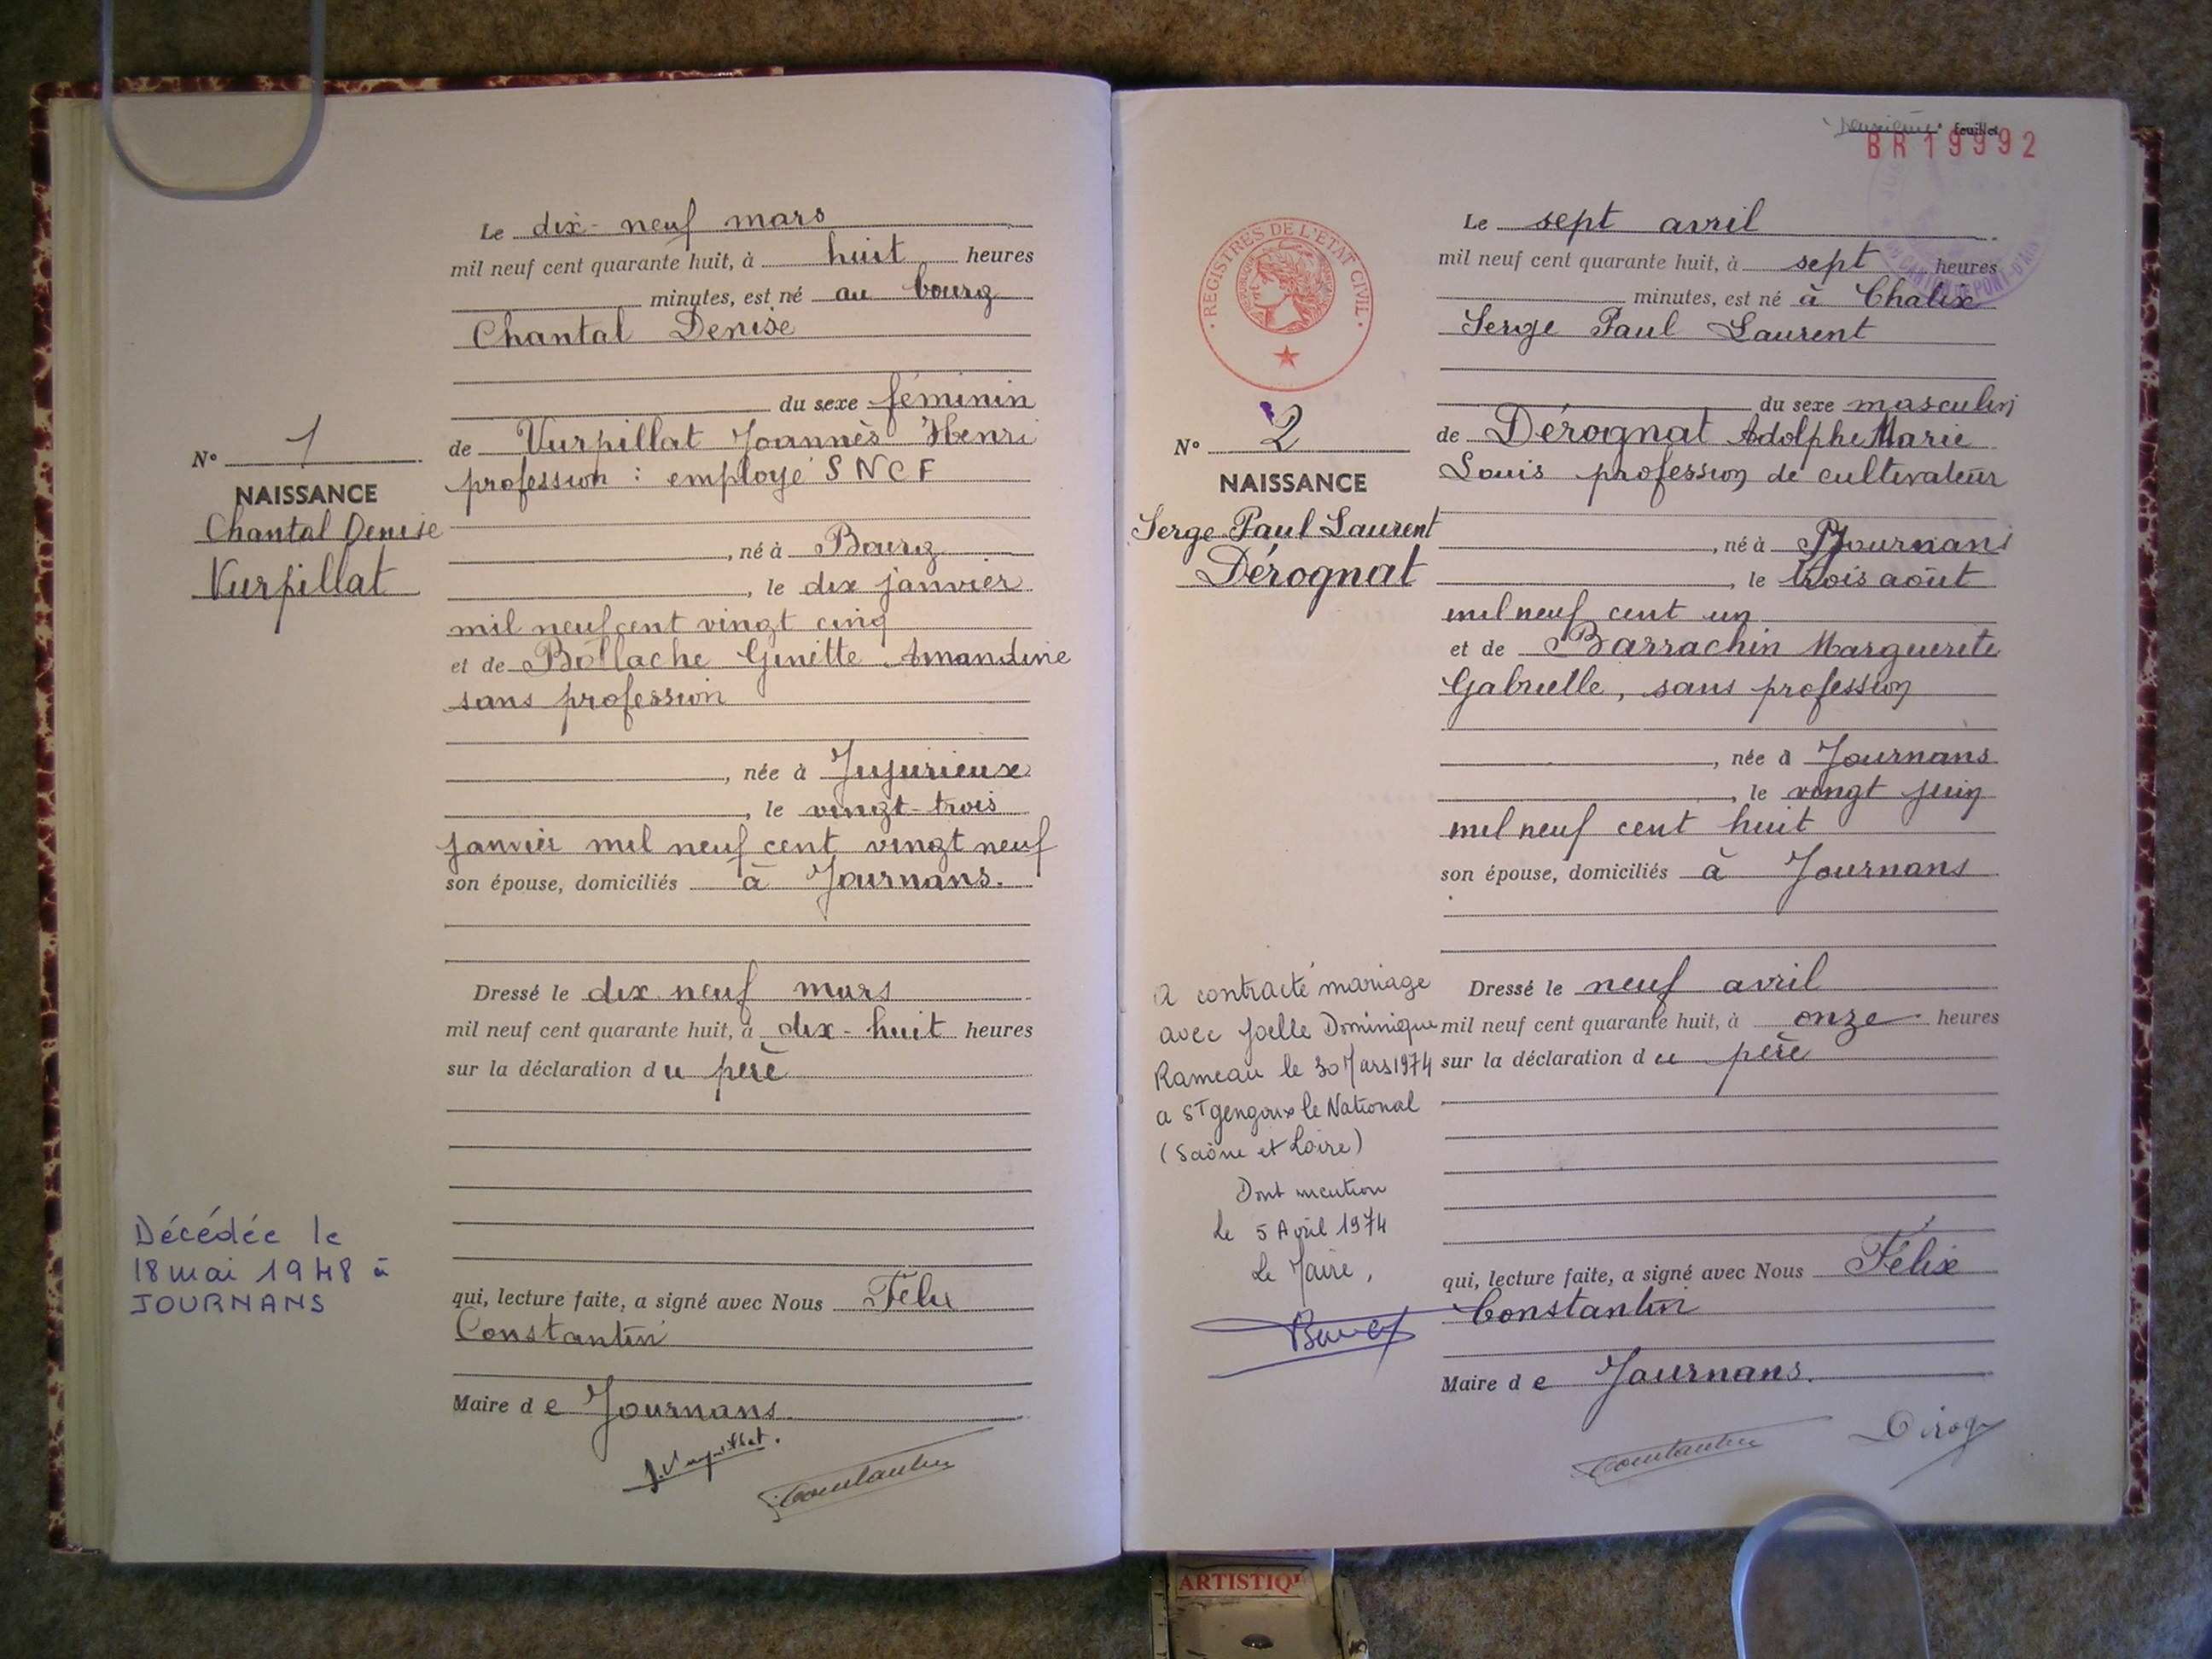 Le dix-neuf mars
mil neuf cent quarante huit, à huit heures
minutes, est né au bourg
Chantal Denise
du sexe féminin
de Vurpillat Joannès Henri
profession : employé SNCF
, né à Bourg
, le dix janvier
mil neuf cent vingt cinq
et de Bollache Ginette Amandine
sans profession
, née à Jujurieux
, le vingt-trois
janvier mil neuf cent vingt neuf
son épouse, domiciliés à Journans.
Dressé le dix neuf mars
mil neuf cent quarante huit, à dix-huit heures
sur la déclaration du père
qui, lecture faite, a signé avec Nous Félix
Constantin
Maire de Journans
J. Vurpillat.
Constantin
N° 1
NAISSANCE
Chantal Denise
Vurpillat
Décédée le
18 mai 1948 à
JOURNANS
Deuxième feuillet
BR19992
Le sept avril
mil neuf cent quarante huit, à sept heures
minutes, est né à Chalix
Serge Paul Laurent
du sexe masculin
de Dérognat Adolphe Marie
Louis profession de cultivateur
, né à Journans
, le trois août
mil neuf cent un
et de Barrachin Marguerite
Gabrielle, sans profession
, née à Journans
, le vingt juin
mil neuf cent huit
son épouse, domiciliés à Journans
Dressé le neuf avril
mil neuf cent quarante huit, à onze heures
sur la déclaration du père
qui, lecture faite, a signé avec Nous Félix
Constantin
Maire de Journans.
Constantin
REGISTRES DE L'ETAT CIVIL
N° 2
NAISSANCE
Serge Paul Laurent
Dérognat
A contracté mariage
avec Joelle Dominique
Rameau le 30 Mars 1974
a St gengoux le National
(Saône et Loire)
Dont mention
Le 5 Avril 1974
Le Maire,
ARTISTIQ